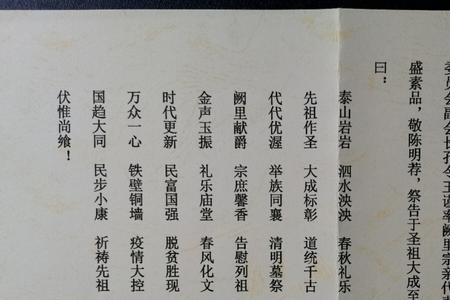 委员会副会长孔令谨率阙里宗亲代
盛素品，敬陈明荐，祭告于圣祖大成至
曰：
泰山岩岩 泗水泱泱 春秋礼乐
先祖作圣 大成标彰 道统千古
代代优渥 举族同襄 清明墓祭
阙里献爵 宗庶馨香 告慰列祖
金声玉振 礼乐庙堂 春风化文
时代更新 民富国强 脱贫胜现
万众一心 铁壁铜墙 疫情大控
国趋大同 民步小康 祈祷先祖
伏惟尚飨！